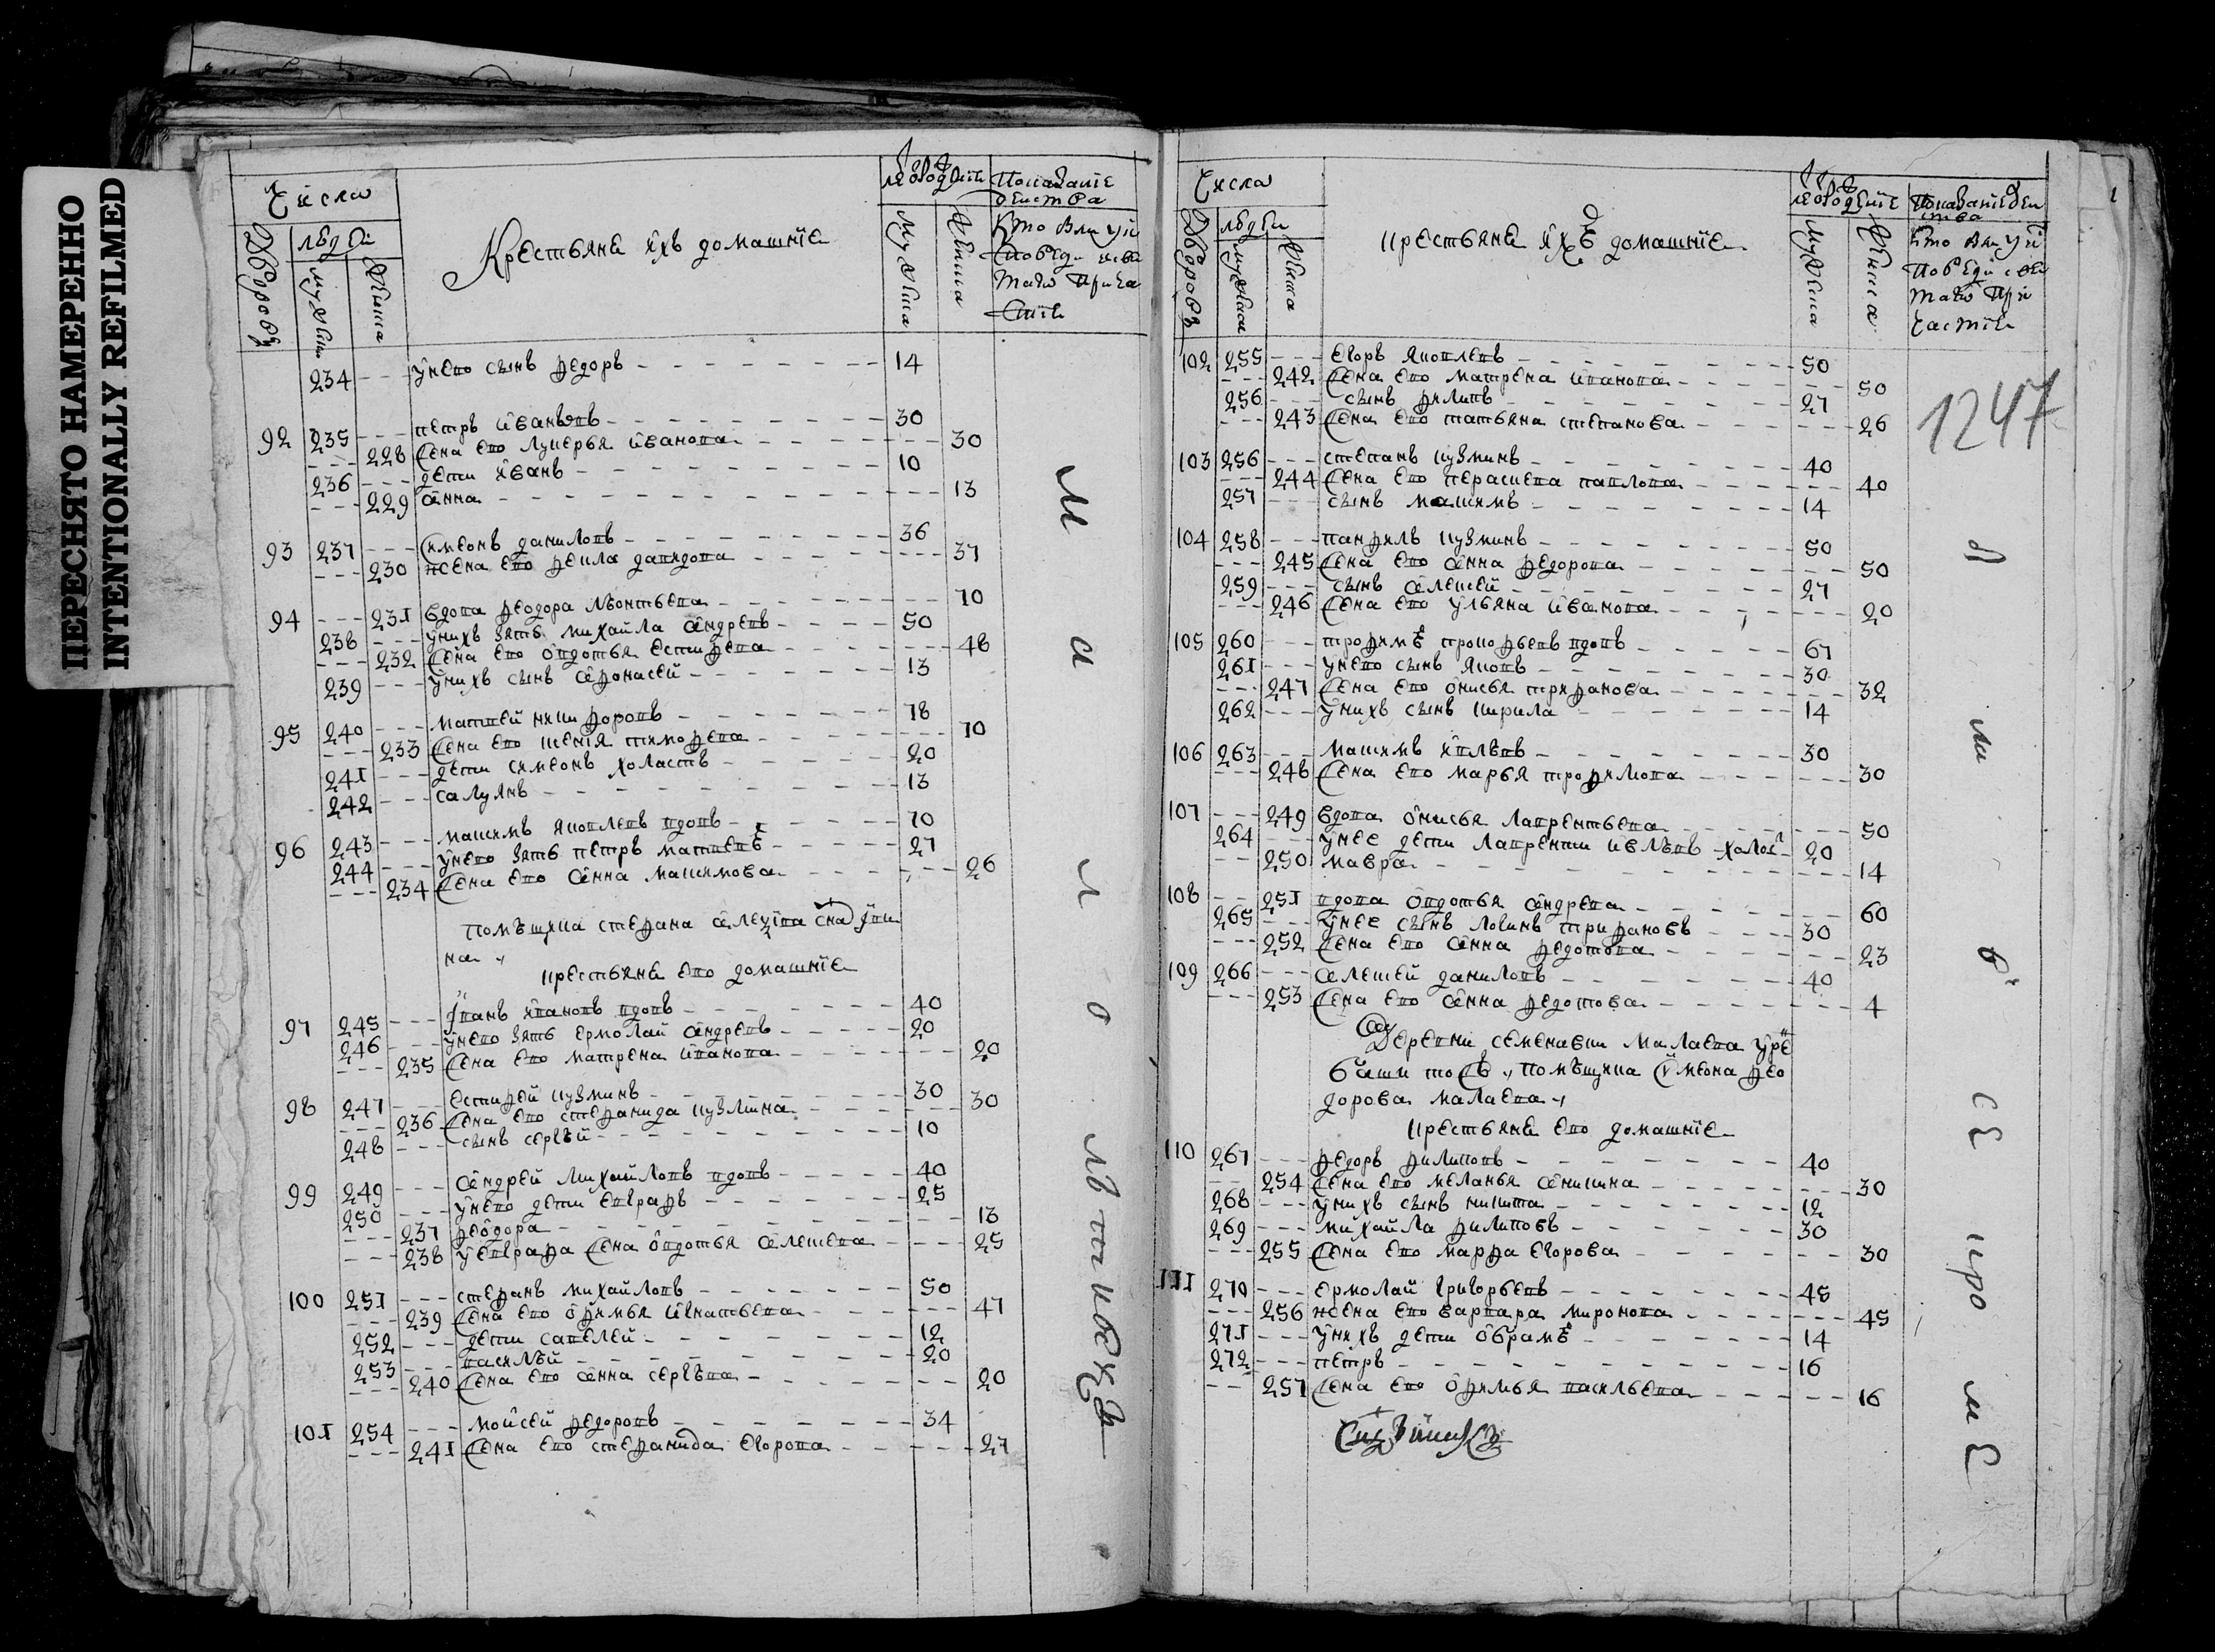 ПЕРЕСНЯТО НАМЕРЕННО
INTENTIONALLY REFILMED
Числа
людей
Дворовъ
мужска
женска
Крестьяне ихъ домашніе
мужска
женска
Показаніе
действа
Кто былъ у и
споведи и св
таго прича
стія
234 --- у него сынъ федоръ 14
92 235 --- петръ івановъ 30
--- 228 жена его лукерья іванова 30
236 --- дети іванъ 10
--- 229 анна 13
93 237 --- симеонъ даниловъ 36
--- 230 жена его фекла давидова 37
94 --- 231 вдова феодора леонтьева 70
238 --- у нихъ зять михайла андреевъ 50
--- 232 жена его овдотья естифеева 48
239 --- у нихъ сынъ афонасей 13
95 240 --- матвей никифоровъ 78
--- 233 жена его ксенія тимофеева 70
241 --- дети симеонъ холастъ 20
242 --- салуянъ 13
96 243 --- максимъ яковлевъ вдовъ 70
244 --- у него зять петръ матвеевъ 27
--- 234 жена его анна максимова 26
помъщика стефана
на
крестьяне его домашніе
97 245 --- іванъ івановъ вдовъ 40
246 --- у него зять ермолай андреевъ 20
--- 235 жена его матрена іванова 20
98 247 --- естифей кузминъ 30
--- 236 жена его стефанида кузмина 30
248 --- сынъ сергъй 10
99 249 --- андрей михайловъ вдовъ 40
250 --- у него дети евграфъ 25
--- 237 феодора 13
--- 238 у евграфа жена овдотья алексеева 25
100 251 --- стефанъ михайловъ 50
--- 239 жена его офимья ігнатьева 47
252 --- дети савелей 12
253 --- василъй 20
--- 240 жена его анна сергъева 20
101 254 --- моисей федоровъ 34
--- 241 жена его стефанида егорова 27
Числа
людей
Дворовъ
мужска
женска
крестьяне ихъ домашніе
мужска
женска
Показаніе деи
ства
Кто былъ у и
споведи і свя
таго при
частія
1247
102 255 --- егоръ яковлевъ 50
--- 242 жена его матрена іванова 50
256 --- сынъ филипъ 27
--- 243 жена его татьяна степанова 26
103 256 --- степанъ кузминъ 40
--- 244 жена его параскева павлова 40
257 --- сынъ максимъ 14
104 258 --- панфилъ кузминъ 50
--- 245 жена его анна федорова 50
259 --- сынъ алексей 27
--- 246 жена его ульяна іванова 20
105 260 --- трофимъ прокофьевъ вдовъ 67
261 --- у него сынъ яковъ 30
--- 247 жена его онисья трифанова 32
262 --- у нихъ сынъ кирила 14
106 263 --- максимъ 30
--- 248 жена его марья трофимова 30
107 --- 249 вдова онисья лаврентьева 50
264 --- у нее дети лаврентий холос 20
--- 250 мавра 14
108 --- 251 вдова овдотья андреева 60
265 --- у нее сынъ логинъ трифановъ 30
--- 252 жена его анна федотова 23
109 266 --- алексей даниловъ 40
--- 253 жена его анна федотова 4
Деревни семеновки малаева
помъщика симеона фео
дорова малаева
крестьяне его домашніе
110 267 --- федоръ филиповъ 40
--- 254 жена его меланья аникина 30
268 --- у нихъ сынъ никита 12
269 --- михайла филиповъ 30
--- 255 жена его марфа егорова 30
111 270 --- ермолай григорьевъ 45
--- 256 жена его варвара миронова 45
271 --- у нихъ дети абрамъ 14
272 --- петръ 16
--- 257 жена его офимья васильева 16